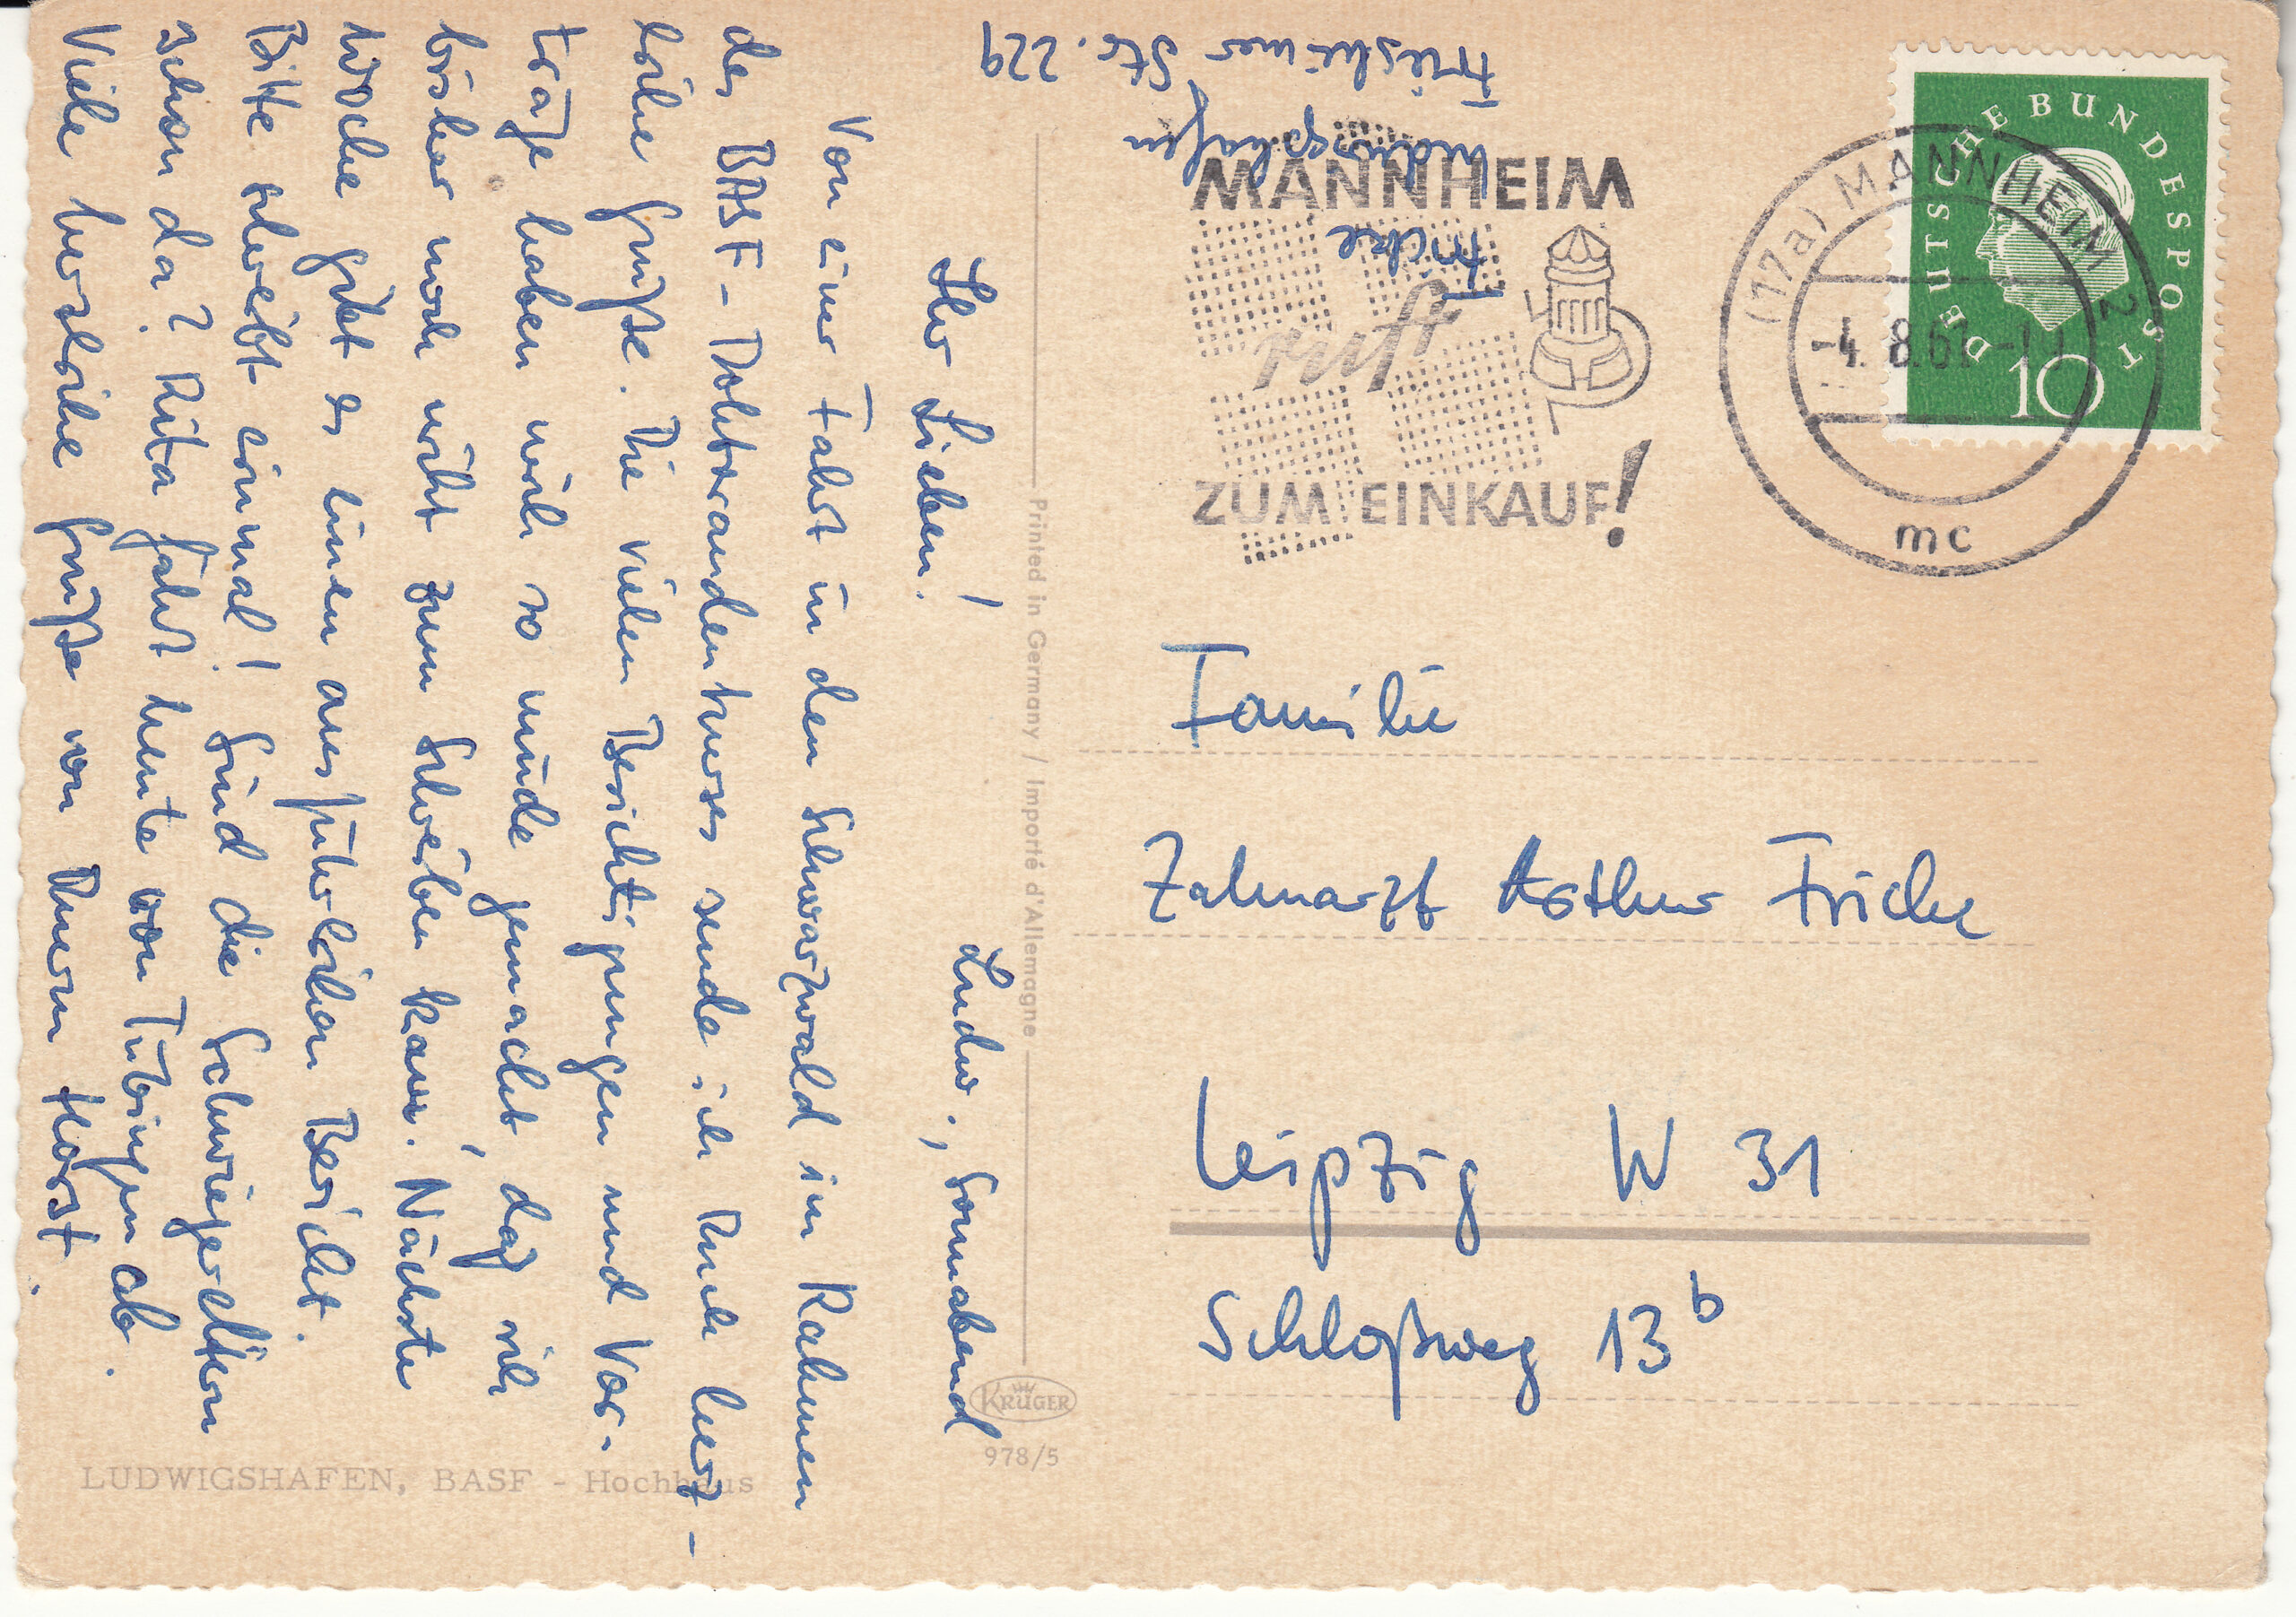 Ludw., Sonnabend
Ihr Lieben!
Von einer Fahrt in den Schwarzwald im Rahmen
des BASF-Doktorandenkurses sende ich Euch herz-
liche Grüße. Die vielen Besichtigungen und Vor-
träge haben mich so müde gemacht, daß ich
bisher noch nicht zum Schreiben kam. Nächste
Woche gibt es einen ausführlichen Bericht.
Bitte schreibt einmal! Sind die Schwiegereltern
schon da? Rita fährt heute von Tübingen ab.
Viele herzliche Grüße von Eurem Horst.
Fricke
Ludwigshafen
Str. 229
MANNHEIM
ruft
ZUM EINKAUF!
(17a) MANNHEIM 2
-4.8.61-
mc
DEUTSCHE BUNDESPOST
10
Familie
Zahnarzt Arthur Fricke
Leipzig W 31
Schloßweg 13b
Printed in Germany / Importé d'Allemagne
KRÜGER
978/5
LUDWIGSHAFEN, BASF - Hochhaus